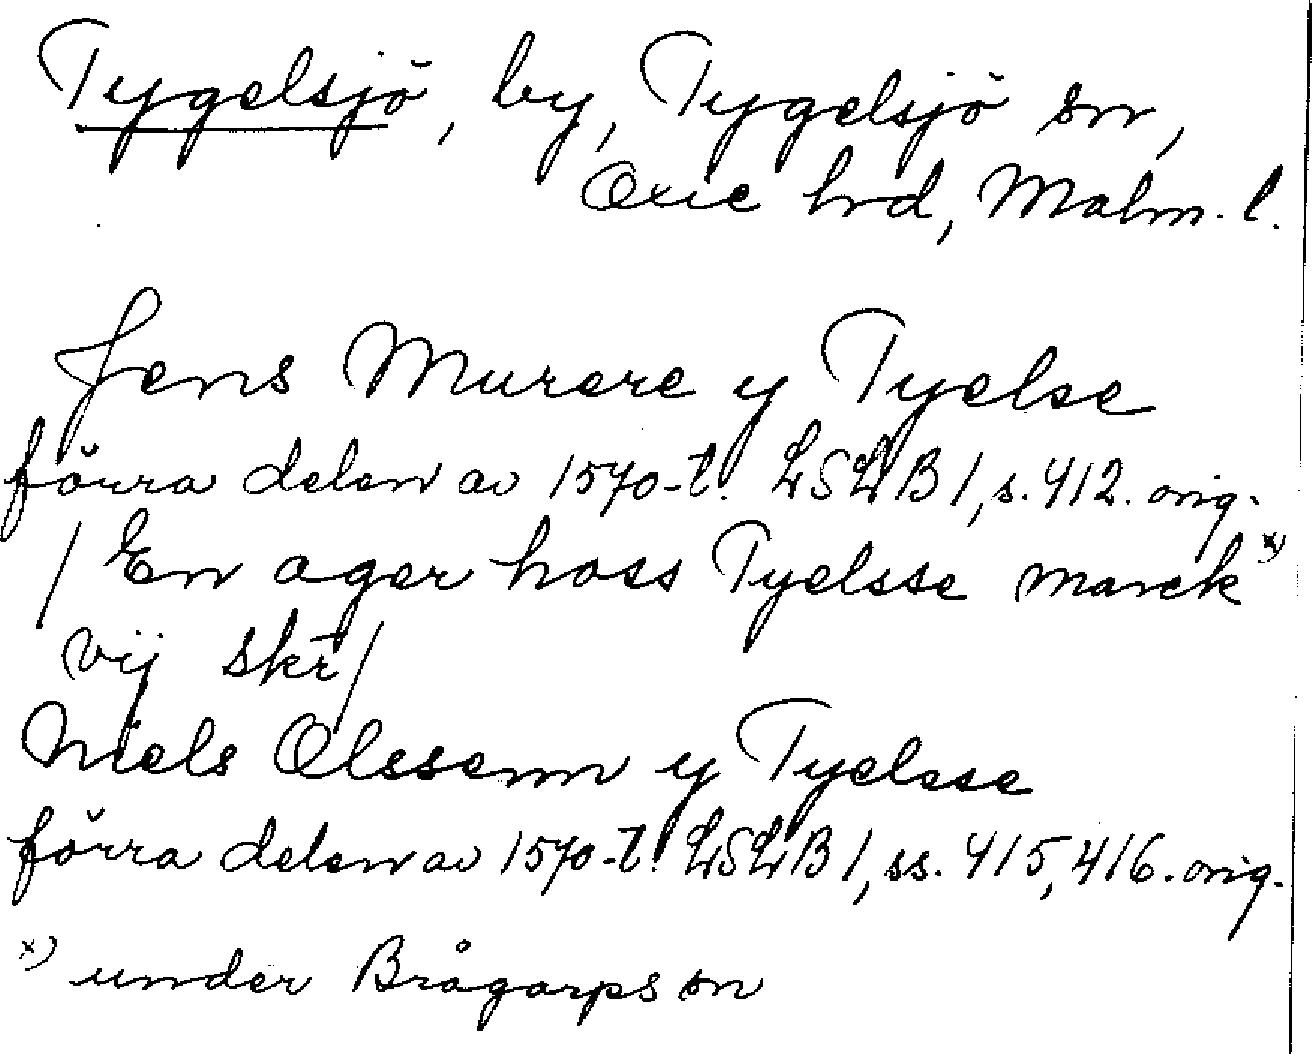 Tygelsjö, by, Tygelsjö sn,
Oxie hrd, Malm. l.
Jens Murere y Tyelse
förra delen av 1570-t. LSLB 1, s. 412. orig.
/ En ager hoss Tyelsse marck x)
vij skr /
Niels Olssenn y Tyelsse
förra delen av 1570-t. LSLB 1, ss. 415, 416. orig.
x) under Brågarps sn